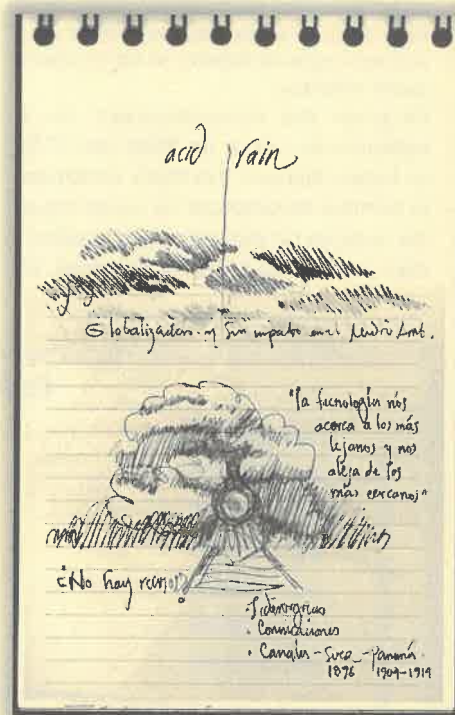 acid rain
Globalización y sin impacto en el Medio Amb.
"la tecnología nos
acerca a los más
lejanos y nos
aleja de los
más cercanos"
¿No hay
·
· Comunicaciones
· Canales - Suez - Panamá
1896 1904-1914